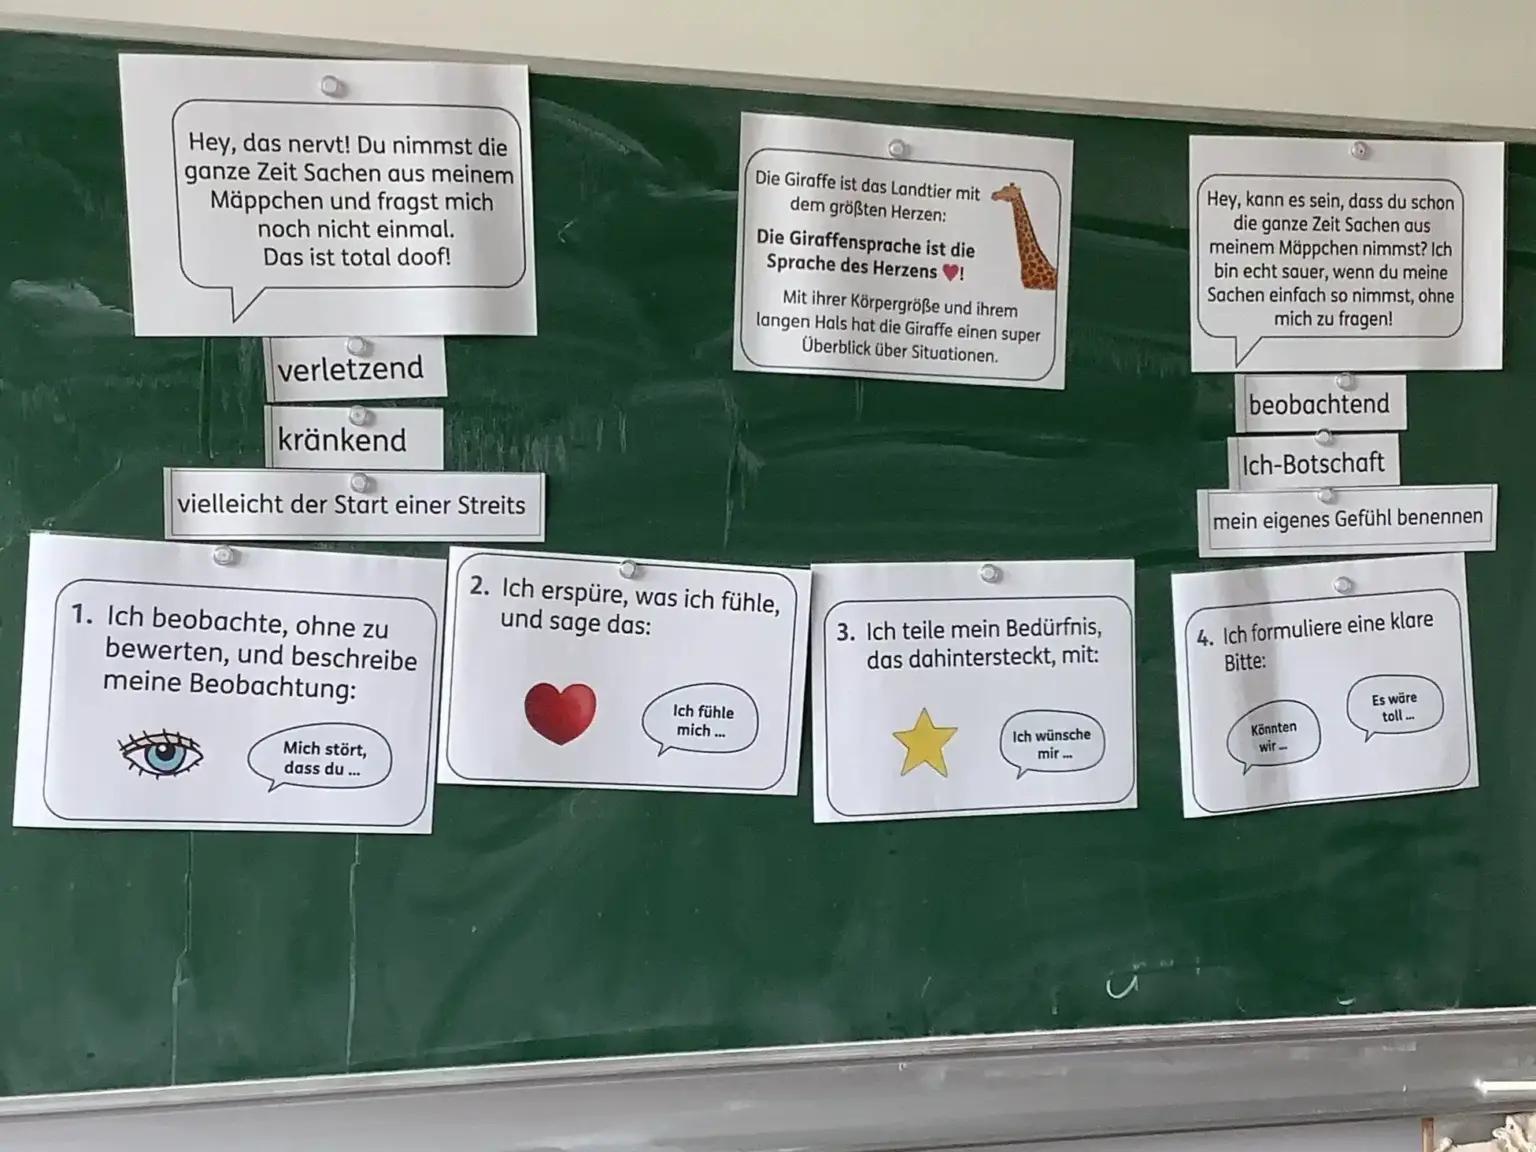 Hey, das nervt! Du nimmst die
ganze Zeit Sachen aus meinem
Mäppchen und fragst mich
noch nicht einmal.
Das ist total doof!
verletzend
kränkend
vielleicht der Start einer Streits
Die Giraffe ist das Landtier mit
dem größten Herzen:
Die Giraffensprache ist die
Sprache des Herzens ♥!
Mit ihrer Körpergröße und ihrem
langen Hals hat die Giraffe einen super
Überblick über Situationen.
Hey, kann es sein, dass du schon
die ganze Zeit Sachen aus
meinem Mäppchen nimmst? Ich
bin echt sauer, wenn du meine
Sachen einfach so nimmst, ohne
mich zu fragen!
beobachtend
Ich-Botschaft
mein eigenes Gefühl benennen
1. Ich beobachte, ohne zu
bewerten, und beschreibe
meine Beobachtung:
Mich stört,
dass du ...
2. Ich erspüre, was ich fühle,
und sage das:
Ich fühle
mich ...
3. Ich teile mein Bedürfnis,
das dahintersteckt, mit:
Ich wünsche
mir ...
4. Ich formuliere eine klare
Bitte:
Könnten
wir ...
Es wäre
toll ...